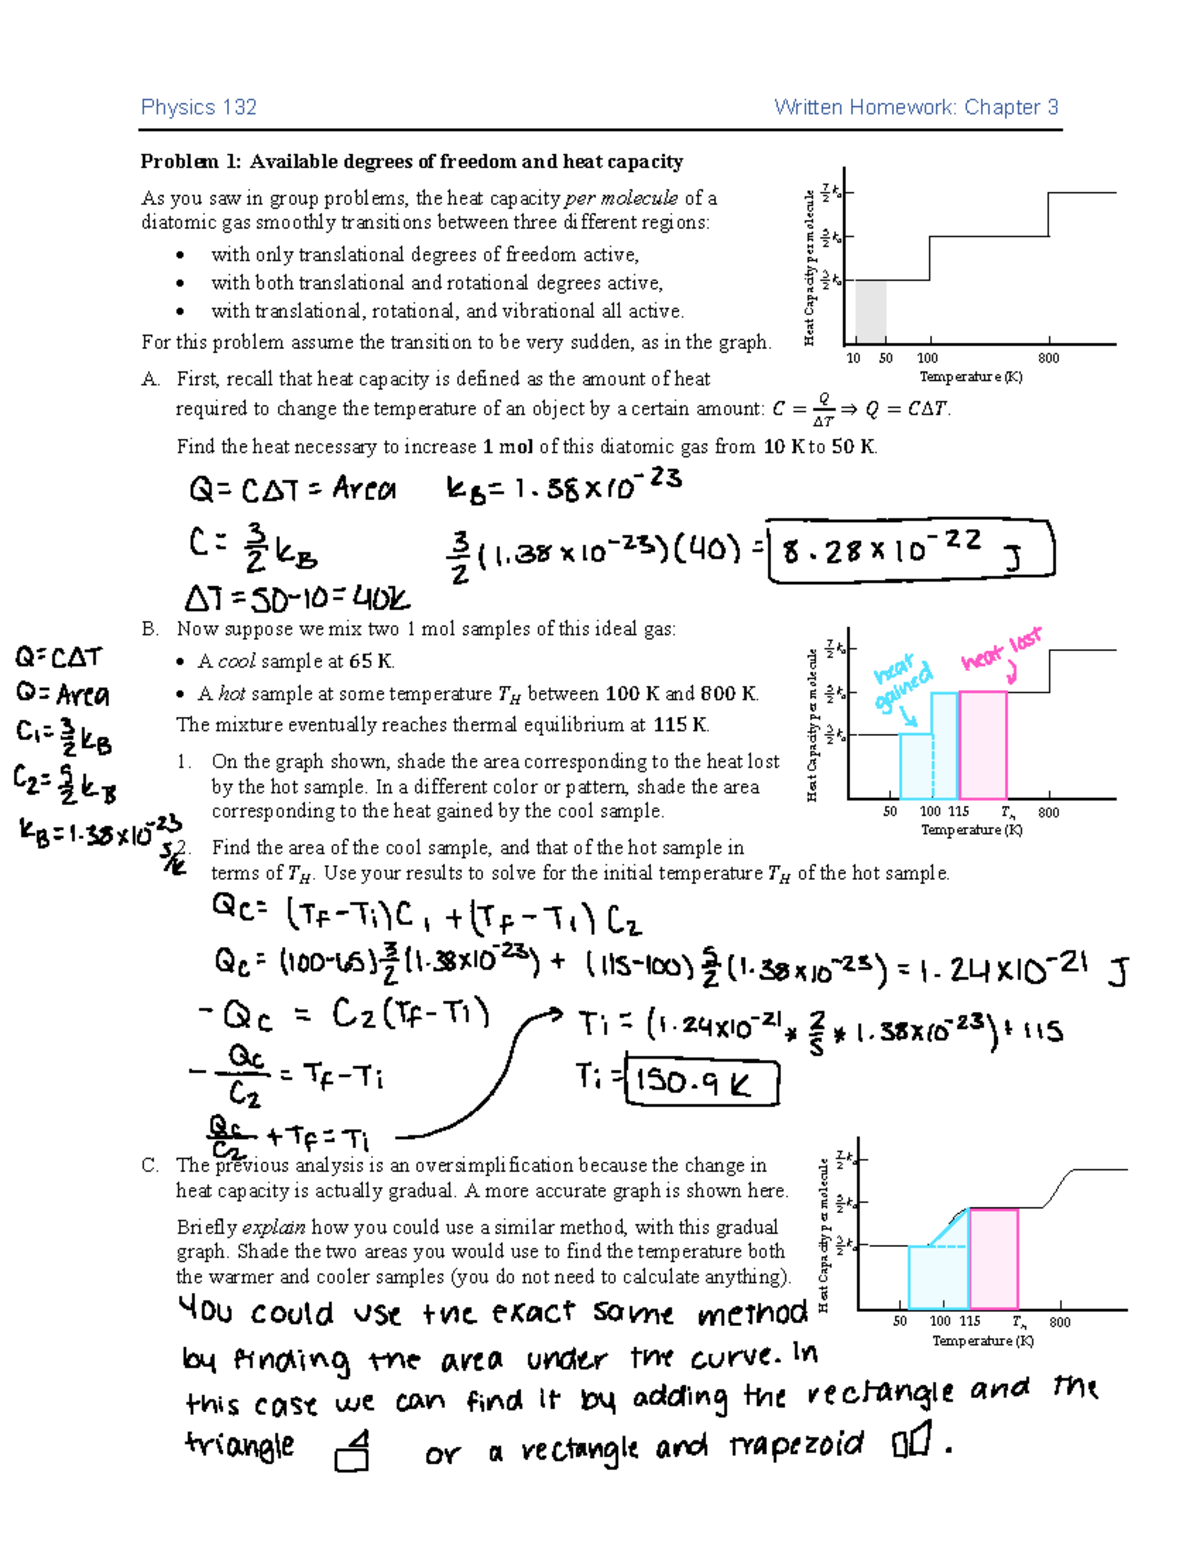 Physics 132 Written Homework: Chapter 3
Problem 1: Available degrees of freedom and heat capacity
As you saw in group problems, the heat capacity per molecule of a
diatomic gas smoothly transitions between three different regions:
• with only translational degrees of freedom active,
• with both translational and rotational degrees active,
• with translational, rotational, and vibrational all active.
For this problem assume the transition to be very sudden, as in the graph.
Heat Capacity per molecule
7/2 k_B
5/2 k_B
3/2 k_B
10 50 100 800
Temperature (K)
A. First, recall that heat capacity is defined as the amount of heat
required to change the temperature of an object by a certain amount: C = Q/ΔT ⇒ Q = CΔT.
Find the heat necessary to increase 1 mol of this diatomic gas from 10 K to 50 K.
Q = CΔT = Area K_B = 1.38×10^-23
C = 3/2 K_B 3/2 (1.38×10^-23)(40) = 8.28×10^-22 J
ΔT = 50-10 = 40K
B. Now suppose we mix two 1 mol samples of this ideal gas:
• A cool sample at 65 K.
• A hot sample at some temperature T_H between 100 K and 800 K.
The mixture eventually reaches thermal equilibrium at 115 K.
Q=CΔT
Q=Area
C1=3/2 K_B
C2=5/2 K_B
K_B=1.38×10^-23 J/K
1. On the graph shown, shade the area corresponding to the heat lost
by the hot sample. In a different color or pattern, shade the area
corresponding to the heat gained by the cool sample.
Heat Capacity per molecule
7/2 k_B
5/2 k_B
3/2 k_B
heat gained
heat lost
50 100 115 T_H 800
Temperature (K)
2. Find the area of the cool sample, and that of the hot sample in
terms of T_H. Use your results to solve for the initial temperature T_H of the hot sample.
Qc = (Tf-Ti)C1 + (Tf-Ti)C2
Qc = (100-65)3/2(1.38×10^-23) + (115-100)5/2(1.38×10^-23) = 1.24×10^-21 J
-Qc = C2(Tf-Ti)
-Qc/C2 = Tf-Ti
Qc/C2 + Tf = Ti
Ti = (1.24×10^-21 * 2/5 * 1.38×10^-23) + 115
Ti = 150.9 K
C. The previous analysis is an oversimplification because the change in
heat capacity is actually gradual. A more accurate graph is shown here.
Briefly explain how you could use a similar method, with this gradual
graph. Shade the two areas you would use to find the temperature both
the warmer and cooler samples (you do not need to calculate anything).
Heat Capacity per molecule
7/2 k_B
5/2 k_B
3/2 k_B
50 100 115 T_H 800
Temperature (K)
You could use the exact same method
by finding the area under the curve. In
this case we can find it by adding the rectangle and the
triangle or a rectangle and trapezoid .